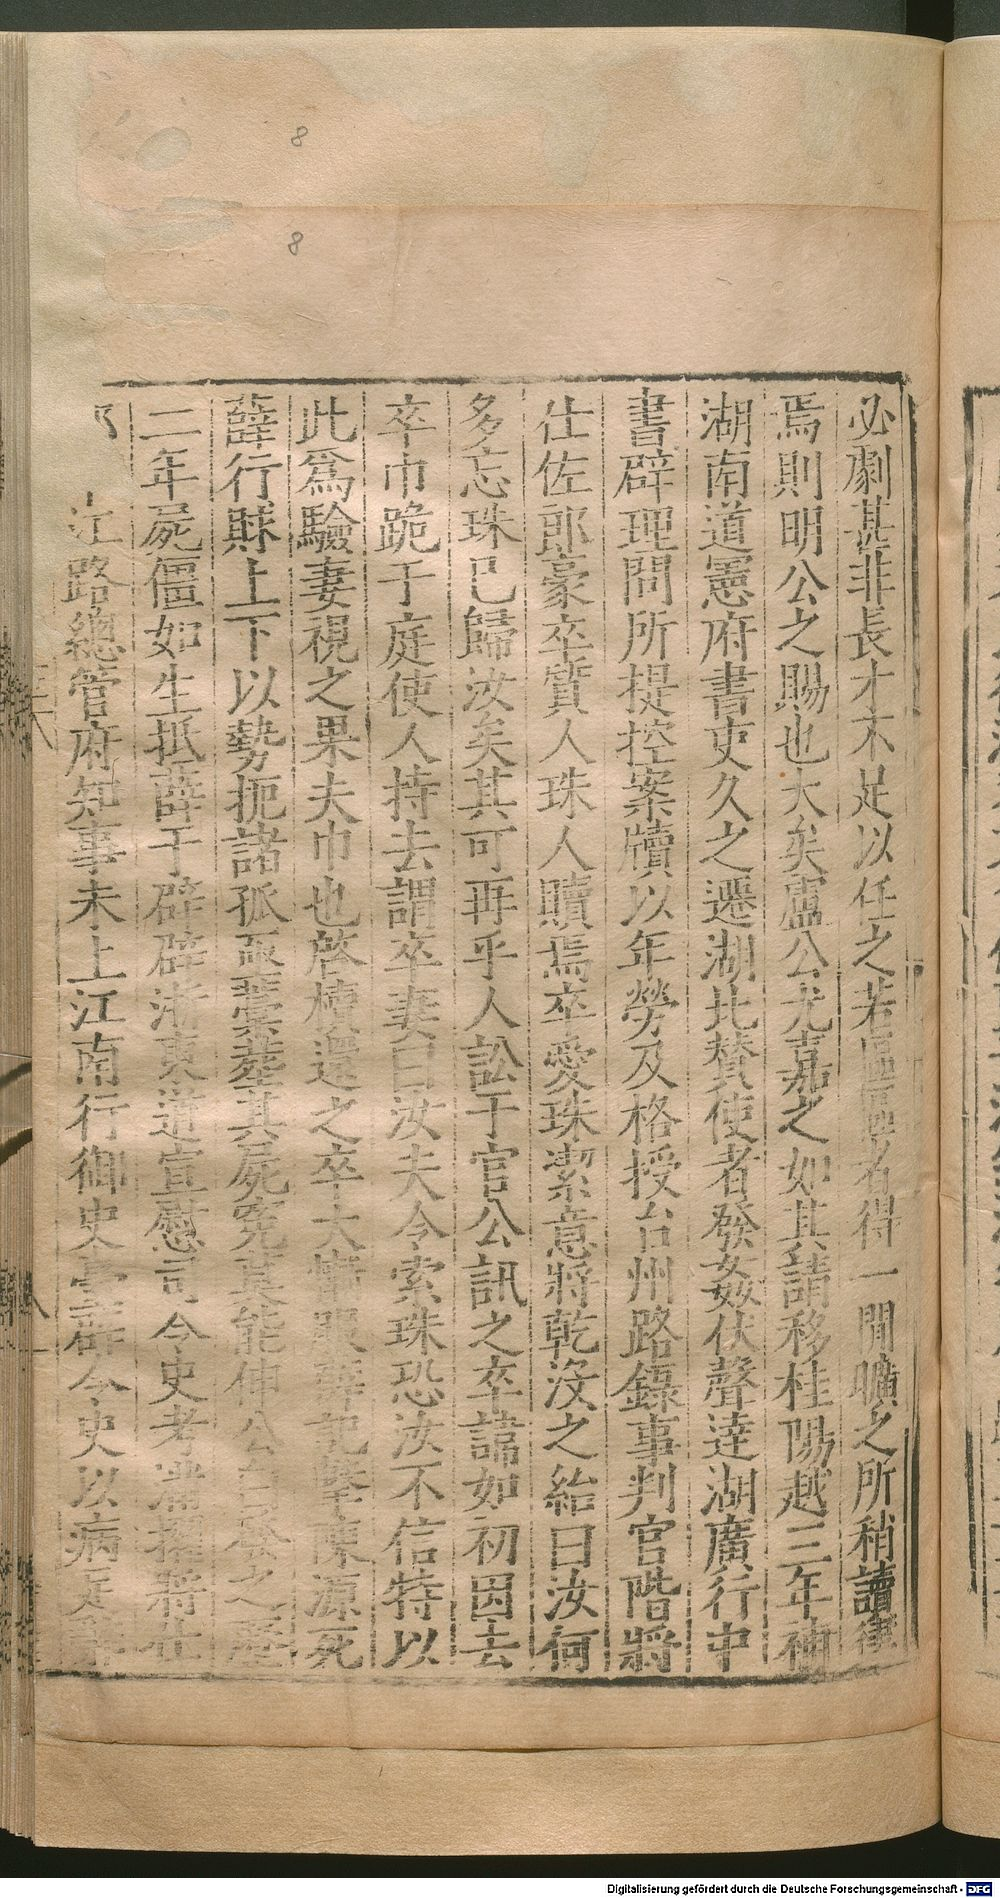 8
8
必劇甚非長才不足以任之若區區者得一閒曠之所稍讀律
焉則明公之賜也大矣盧公尤嘉之如其請移桂陽越三年神
湖南道憲府書吏久之遷湖北賛使者發姦伏聲達湖廣行中
書辟理問所提控案牘以年勞及格授台州路錄事判官階將
仕佐郎豪卒質人珠人贖焉卒愛珠潔意將乾没之紿曰汝何
多忘珠已歸汝矣其可再乎人訟于官公訊之卒諱如初因去
卒巾跪于庭使人持去謂卒妻曰汝夫今索珠恐汝不信特以
此爲驗妻視之果夫巾也啓櫝還之卒大慚服陳源死
薛行賕上下以勢扼諸孤亟藁葬其屍寃莫能伸公之
二年屍僵如生抵薛于辟辟浙東道宣慰司令史考滿將仕
江路總管府知事未上江南行御史臺辟令史以病
Digitalisierung gefördert durch die Deutsche Forschungsgemeinschaft - DFG